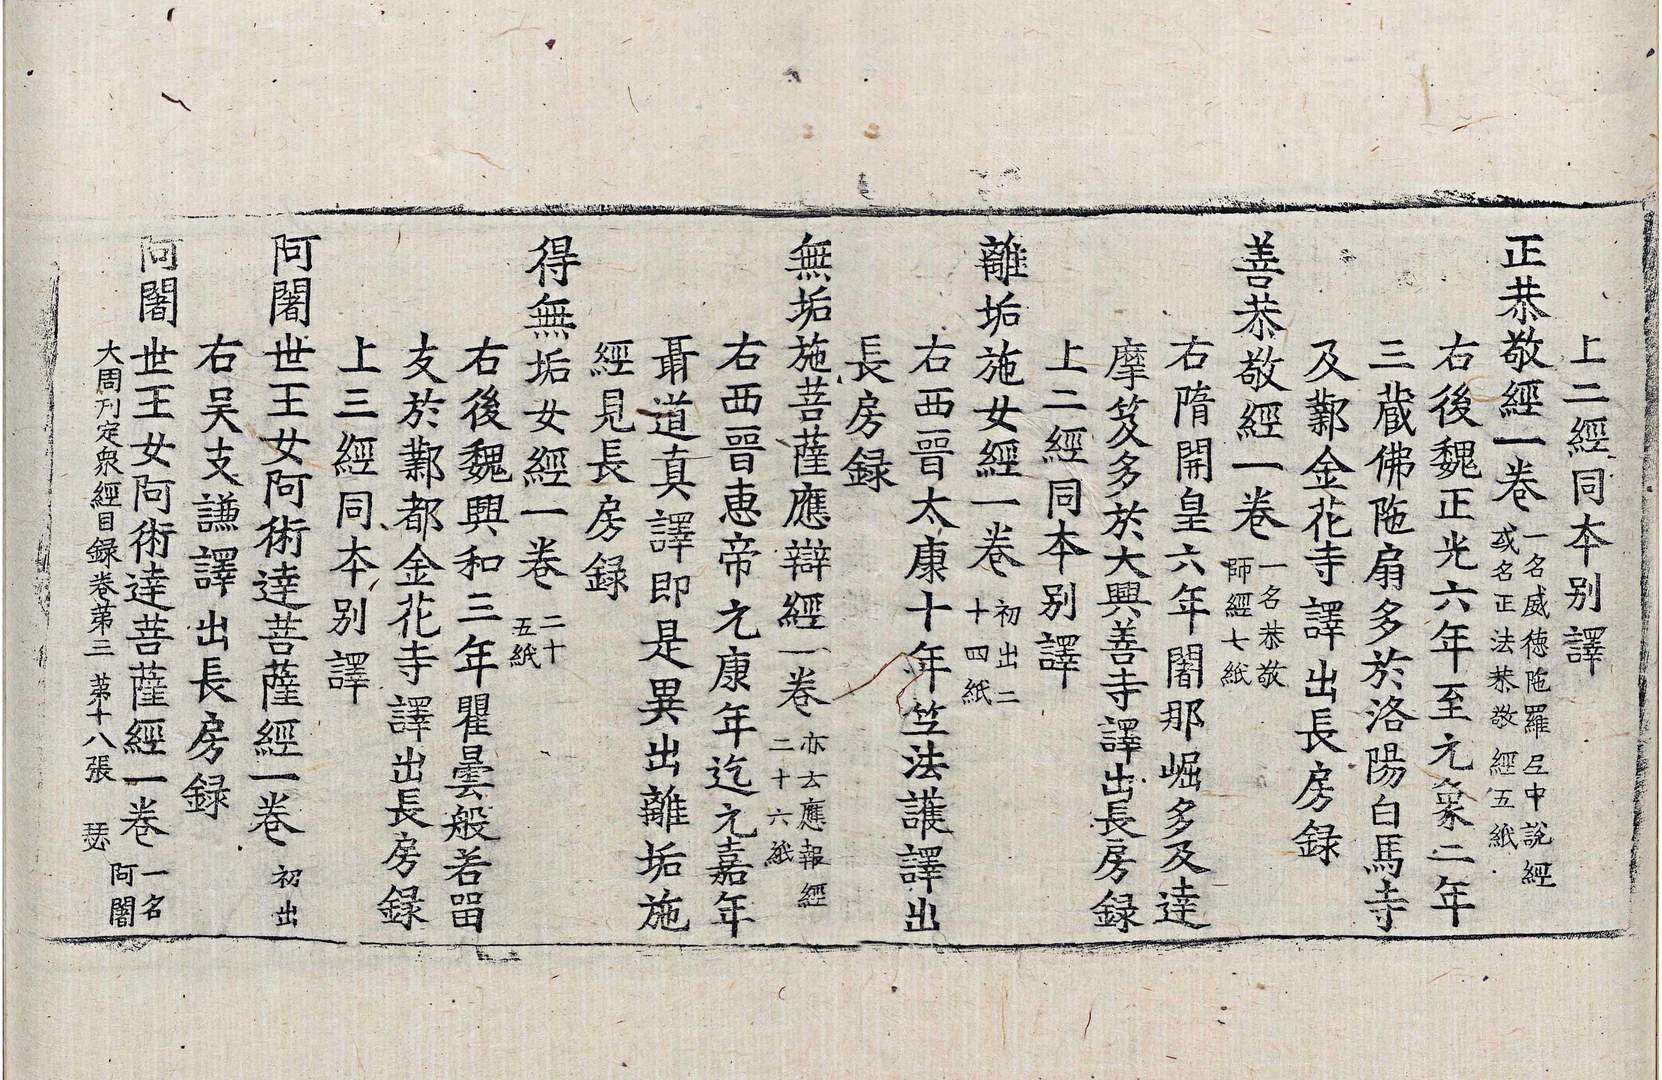 上二經同本别譯
正恭敬經一卷 一名威德陁羅𠯁中說經 或名正法恭敬經五紙
右後魏正光六年至元象二年
三蔵佛陁扇多於洛陽白馬寺
及鄴金花寺譯出長房録
善恭敬經一卷 一名恭敬 師經七紙
右隋開皇六年闍那崛多及達
摩笈多於大興善寺譯出長房録
上二經同本别譯
離垢施女經一卷 初出二 十四紙
右西晉太康十年竺法護譯出
長房録
無垢施菩薩應辯經一卷 亦云應報經 二十六紙
右西晉恵帝元康年迄元嘉年
聶道真譯即是異出離垢施
經見長房録
得無垢女經一卷 二十 五紙
右後魏興和三年瞿曇般若留
支於鄴都金花寺譯出長房録
上三經同本别譯
阿闍世王女阿術達菩薩經一卷 初出
右吴支謙譯出長房録
阿闍世王女阿術達菩薩經一卷 一名 阿闍
大周刋定衆經目録卷苐三 苐十八張 瑟